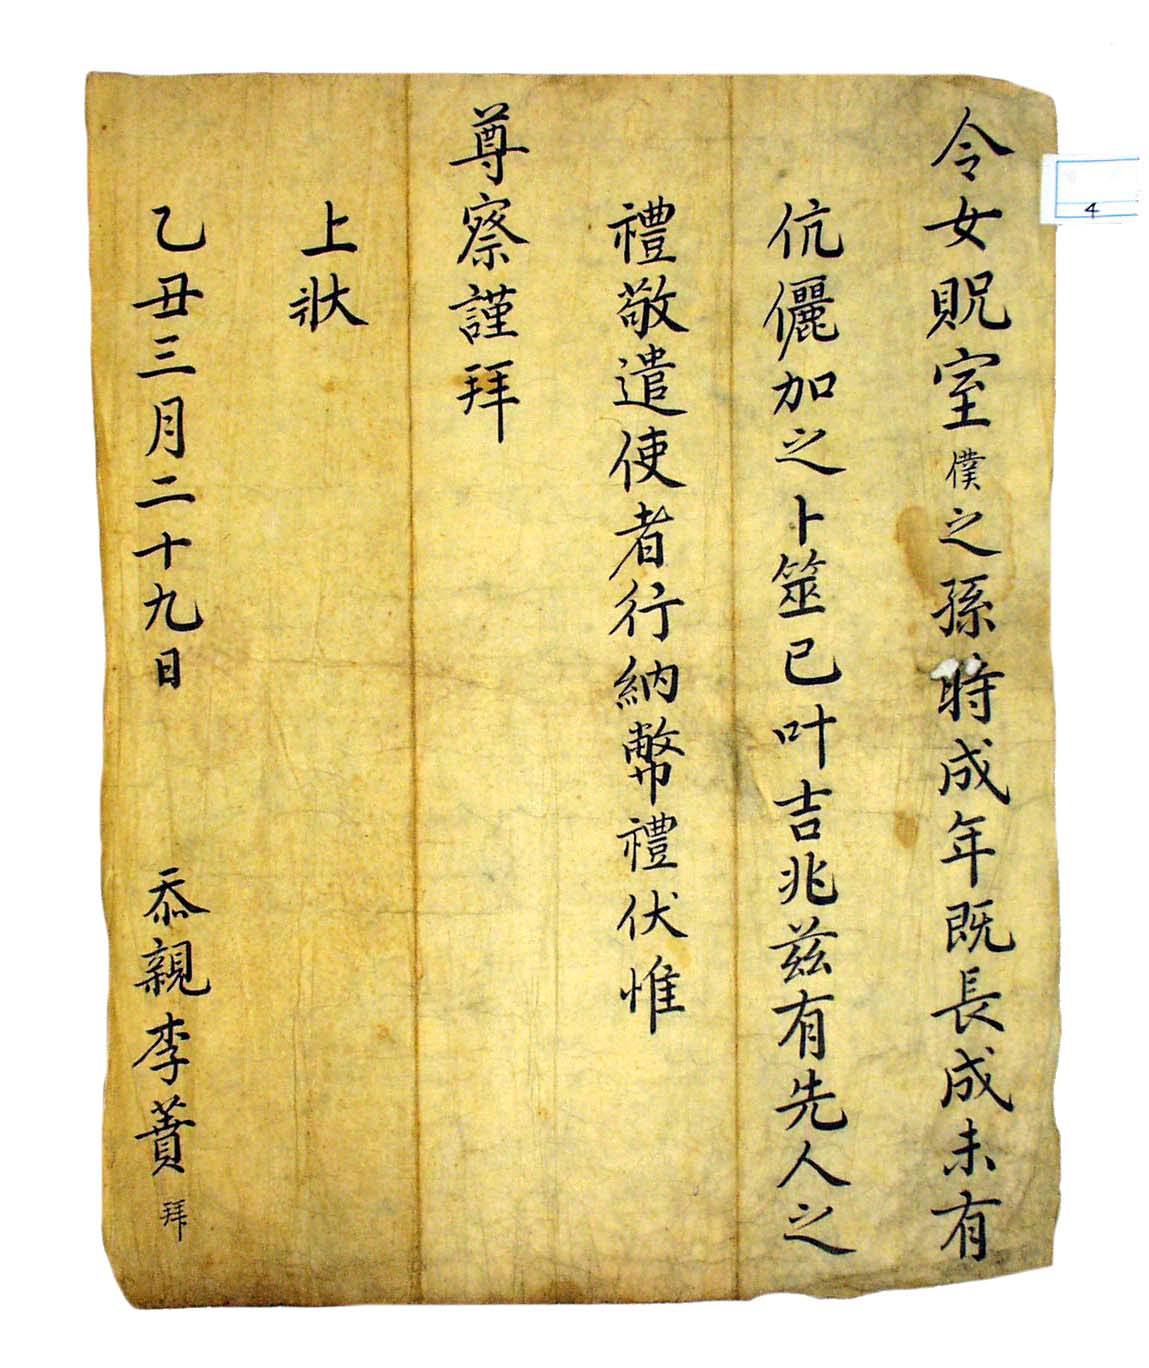 令女貺室僕之孫時成年既長成未有
伉儷加之卜筮已叶吉兆茲有先人之
禮敬遣使者行納幣禮伏惟
尊察謹拜
上狀
乙丑三月二十九日 忝親李蕡拜
4